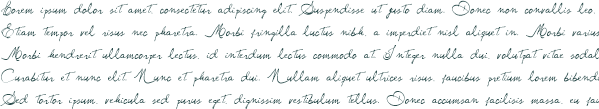 Lorem ipsum dolor sit amet, consectetur adipiscing elit. Suspendisse ut justo diam. Donec non convallis leo.
Etiam tempor vel risus nec pharetra. Morbi fringilla luctus nibh, a imperdiet nisl aliquet in. Morbi varius
Morbi hendrerit ullamcorper lectus, id interdum lectus commodo at. Integer nulla dui, volutpat vitae sodal
Curabitur et nunc elit. Nunc et pharetra dui. Nullam aliquet ultrices risus, faucibus pretium lorem bibend
Sed tortor ipsum, vehicula sed purus eget, dignissim vestibulum tellus. Donec accumsan facilisis massa, in fau